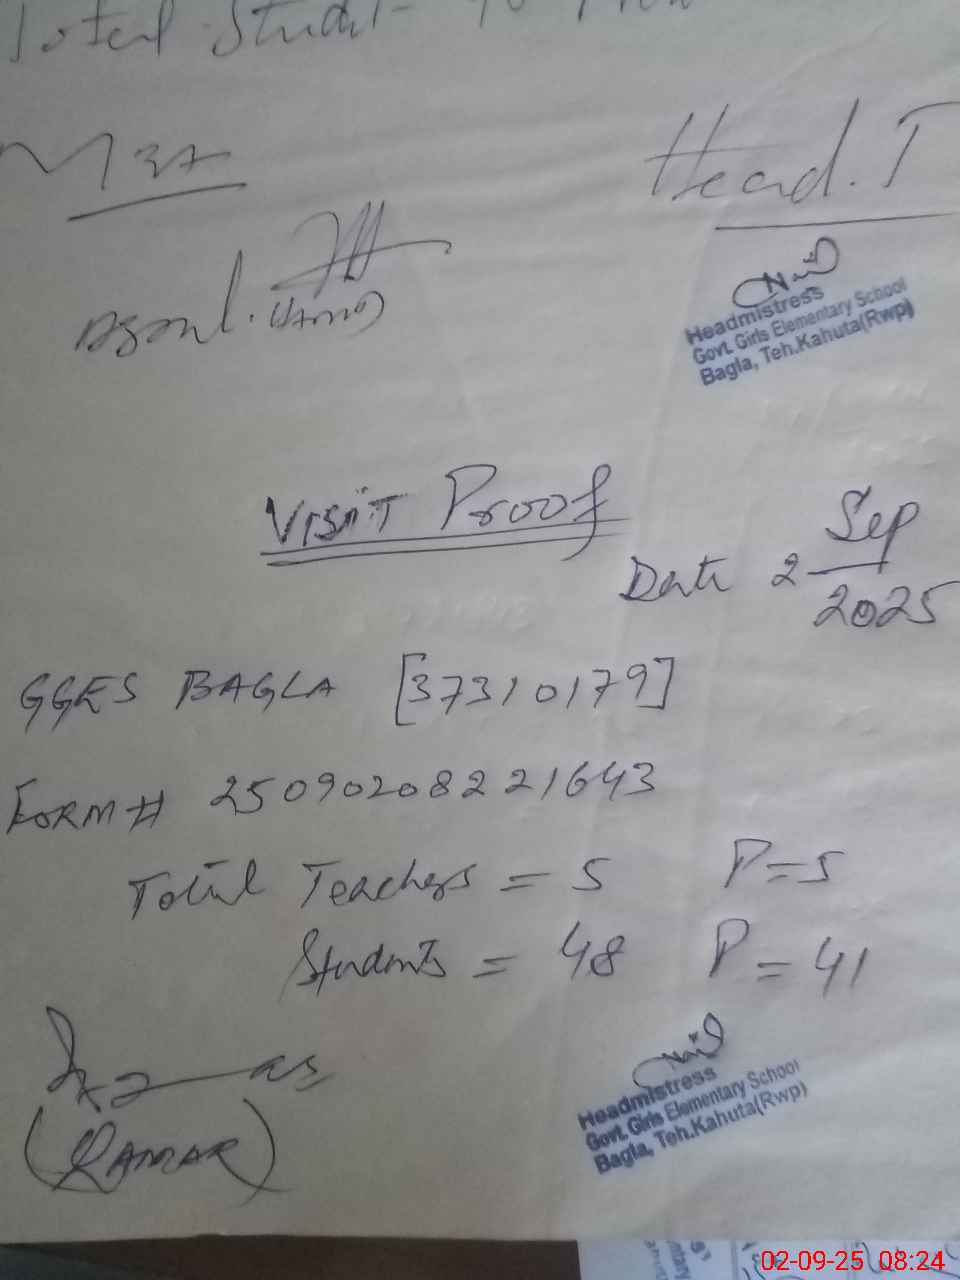 Total Studt-
Head. T
Headmistress
Govt. Girls Elementary School
Bagla, Teh.Kahuta(Rwp)
VISIT Proof
Date 2 Sep
2025
GGES BAGLA [37310179]
FORM # 25090208221643
Total Teachers = 5 P=5
Students = 48 P = 41
Headmistress
Govt. Girls Elementary School
Bagla, Teh.Kahuta(Rwp)
02-09-25 08:24